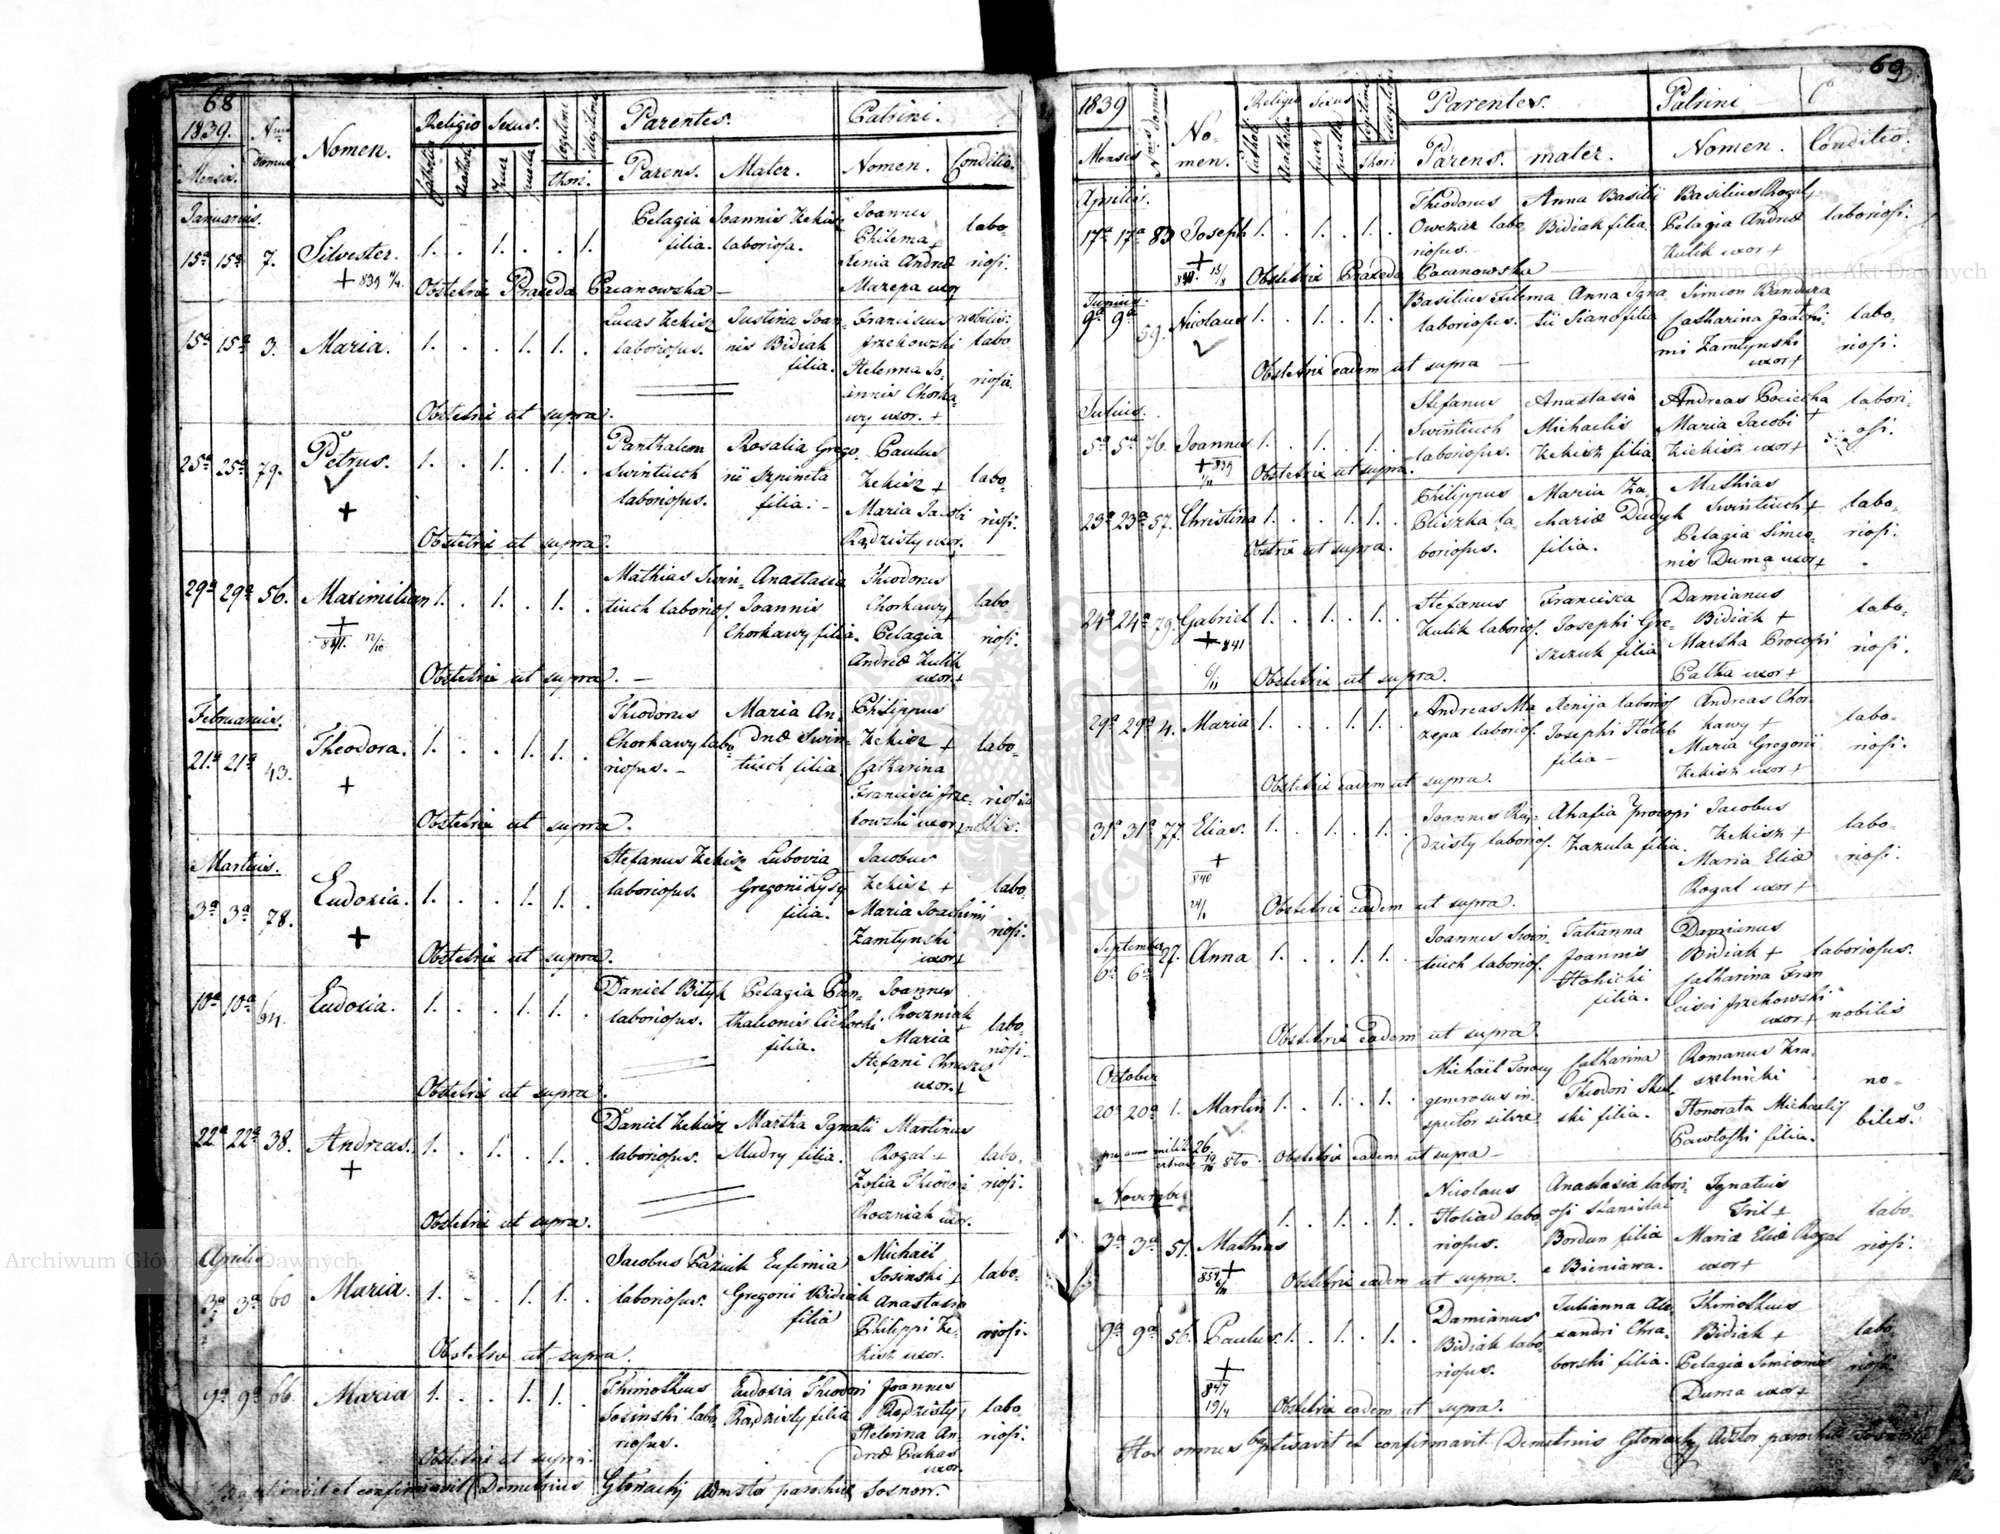 68
1839.
Mensis.
Nrus domus
Nomen.
Religio
Sexus.
Catholica
Puer
puella
legitimi
illegitimi
thori.
Parentes.
Parens.
Mater.
Patrini.
Nomen.
Conditio.
Januarius.
15ª 15ª 7. Silvester. 1. . 1. . . 1.
+ 839
Pelagia Joannis Kekisz
filia. laboriosa.
Joannes
Philema +
Xenia Andreæ
Mazepa uxor
labo-
riosi.
Obstetrix Praxeda Pacanowska —
15ª 15ª 3. Maria. 1. . . 1. 1. .
Lucas Kekisz
laboriosus.
Justina Joan-
nis Bidiak
filia.
Franciscus
Jrzekowski
Helenna Jo-
annis Chorka-
wy uxor. +
nobilis:
labo
riosi.
Obstetrix ut supra.
25ª 25ª 79. Petrus. 1. . 1. . 1. .
+
Panthaleon
Swintiuch
laboriosus.
Rosalia Grego
rii Szpineta
filia. —
Paulus
Kekisz +
Maria Jacobi
Radzisty uxor.
labo-
riosi.
Obstetrix ut supra.
29ª 29ª 56. Maximilian 1. . 1. . 1. .
+
841. 12/10
Mathias Swin-
tiuch laborios.
Anastasia
Joannis
Chorkawy filia.
Theodorus
Chorkawy +
Pelagia
Andreæ Kulik
uxor +
labo
riosi.
Obstetrix ut supra. —
Februarius.
21ª 21ª 43. Theodora. 1. . . 1. 1. .
+
Theodorus
Chorkawy labo-
riosus. —
Maria An-
dreæ Swin-
tiuch filia
Philippus
Kekisz +
Catharina
Francisci Jrze-
kowski uxor +
labo-
riosi
nobilis.
Obstetrix ut supra.
Martius.
3ª 3ª 78. Eudoxia. 1. . . 1. 1. .
+
Stefanus Kekisz
laboriosus.
Lubovia
Gregorii Lysy
filia.
Jacobus
Kekisz +
Maria Joachimi
Zamtynski
uxor +
labo
riosi.
Obstetrix ut supra.
10ª 10ª 64. Eudoxia. 1. . . 1. 1. .
Daniel Bityk
laboriosus.
Pelagia Pan-
thaleonis Cichocki
filia.
Joannes
Roczniak +
Maria
Stefani
uxor. +
labo-
riosi.
Obstetrix ut supra.
22ª 22ª 38. Andreas. 1. . 1. . 1. .
+
Daniel Kekisz
laboriosus.
Martha Ignatii
Mudry filia.
Martinus
Rogal +
Zofia Theodori
Roczniak uxor.
labo-
riosi.
Obstetrix ut supra.
Aprilis
3ª 3ª 60 Maria. 1. . . 1. 1. .
Jacobus Paziuk
laboriosus.
Eufimia
Gregorii Bidiak
filia
Michaël
Sosinski +
Anastasia
Philippi Ke-
kisz uxor.
labo-
riosi.
Obstetrix ut supra.
9ª 9ª 66. Maria 1. . . 1. 1. .
Thimotheus
Sosinski labo
riosus.
Eudoxia Theodori
Radzisty filia
Joannes
Radzisty +
Helenna An-
dreæ Pukas
uxor.
labo
riosi.
Obstetrix ut supra.
Baptisavit et confirmavit Demetrius Głowacky Admstor parochiæ Sosnow.
69
1839
Mensis
Nrus Domus
No-
men.
Religio
Sexus
puer
puella
legitimi
illegitimi
Thori
Parentes.
Parens.
mater.
Patrini
Nomen.
Conditio.
Aprilis.
17ª 17ª 83 Joseph 1. . 1. . 1. .
+
840. 15/8
Theodorus
Owczar labo
riosus.
Anna Basilii
Bidiak filia
Basilius Rogal +
Pelagia Andreæ
Kulik uxor +
laboriosi.
Obstetrix Praxeda Pacanowska —
Junius.
9ª 9ª 59. Nicolaus 1. . 1. . 1. .
Basilius Filema
laboriosus.
Anna Igna
tii Siano filia
Simeon Bandura
Catharina Joachi-
mi Zamtynski
uxor +
labo-
riosi.
Obstetrix eadem ut supra —
Julius.
5ª 5ª 76. Joannes 1. . 1. . 1. .
+ 839
Stefanus
Swintiuch
laboriosus.
Anastasia
Michaelis
Kekisz filia
Andreas Pociecha
Maria Jacobi +
Kiekisz uxor +
labori-
osi.
Obstetrix ut supra.
23ª 23ª 57. Christina 1. . . 1. 1. .
Philippus
Pliszka la-
boriosus.
Maria Za-
chariæ Dudyk
filia.
Mathias
Swintiuch +
Pelagia Simeo-
nis Duma uxor +
labo-
riosi.
Obstrix ut supra.
24ª 24ª 79. Gabriel 1. . 1. . 1. .
+ 841
6/11
Stefanus
Kulik laborios.
Francisca
Josephi Gre-
szczuk filia
Damianus
Bidiak +
Martha Procopi
Palka uxor +
labo-
riosi.
Obstetrix ut supra.
29ª 29ª 4. Maria 1. . . 1. 1. .
Andreas Ma
zepa laborios.
Xenija laborios
Josephi Holub
filia —
Andreas Chor-
kawy +
Maria Gregorii
Kekisz uxor +
labo-
riosi.
Obstetrix eadem ut supra.
31ª 31ª 77. Elias. 1. . 1. . 1. .
+
840
24/1
Joannes Ra-
dzisty laborios.
Ahafia Procopi
Zazula filia.
Jacobus
Kekisz +
Maria Eliæ
Rogal uxor +
labo-
riosi.
Obstetrix eadem ut supra.
September
6ª 6ª 27. Anna 1. . . 1. 1. .
Joannes Swin-
tiuch laborios.
Tatianna
Joannis
Holicki
filia.
Damianus
Bidiak +
Catharina Fran
cisci Jrzekowski
uxor +
laboriosus.
nobilis
Obstetrix eadem ut supra.
October
20ª 20ª 1. Martin 1. . 1. . 1. .
Michaël
generosus in-
spector silvæ
Catharina
Theodori
ski filia.
Romanus Kra-
szelnicki
Honorata Michaelis
Pawłoski filia.
no-
biles.
Obstetrix eadem ut supra —
November
3ª 3ª 51. Mathias 1. . 1. . 1. .
+
Nicolaus
Holiad labo
riosus.
Anastasia labori-
osi Stanislai
Bordun filia
e Bieniawa.
Ignatius
Tril +
Maria Eliæ Rogal
uxor +
labo-
riosi.
Obstetrix eadem ut supra.
9ª 9ª 56. Paulus. 1. . 1. . 1. .
+
847
19/4
Damianus
Bidiak labo-
riosus.
Julianna Ale-
xandri Chra-
borski filia.
Thimotheus
Bidiak +
Pelagia Simeonis
Duma uxor +
labo-
riosi
Obstetrix eadem ut supra.
Hos omnes baptisavit et confirmavit Demetrius Głowacky Adstor parochiæ
Archiwum Główne Akt Dawnych
Archiwum Główne Akt Dawnych